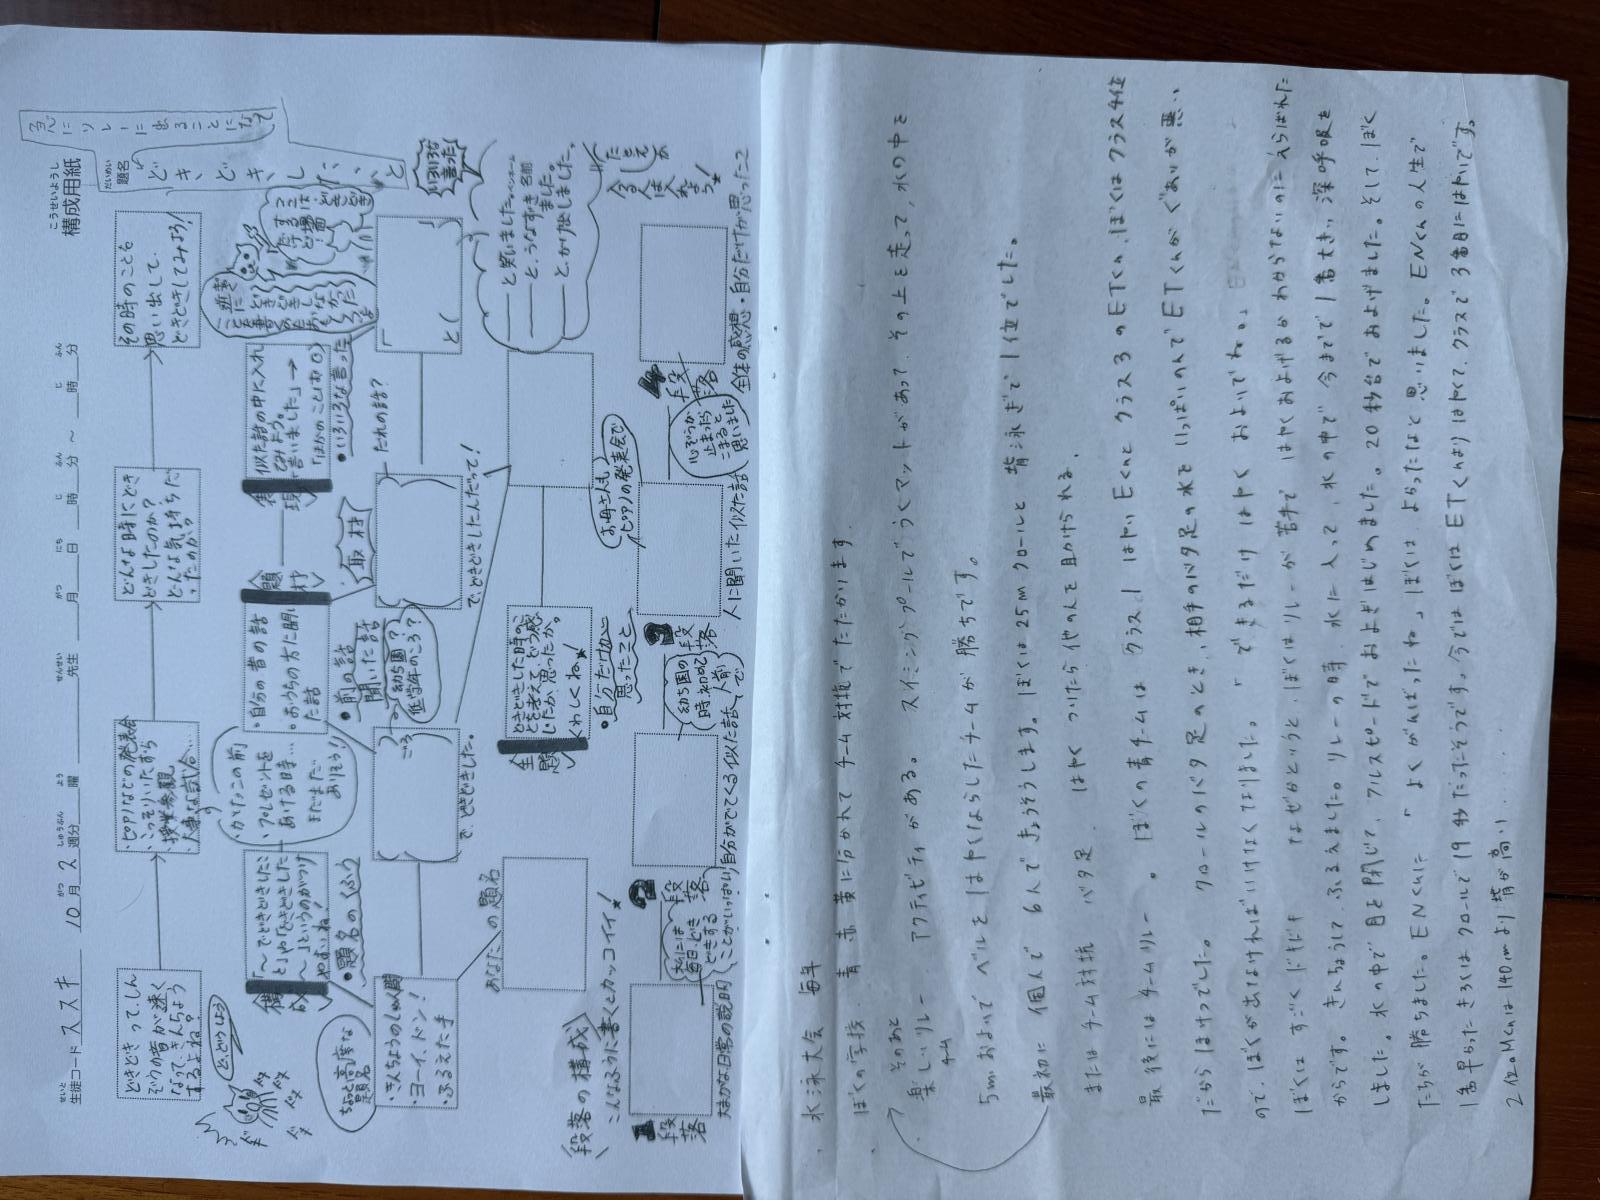 構成用紙
こうせいようし
生徒コード ススキ 10月 2週分 曜 先生 月 日 時 分 ～ 時 分
題名
急にリレーに出ることになって
どきどきしたこと
どきどきって、しん
ぞうの音が速く
なって、きんちょう
するよね？
・ピアノなどの発表会
・こっそりいたずら
・授業参観
・大事な試合…
どんな時にどき
どきしたのか？
どんな気持ちだ
ったのか？
その時のことを
思い出して、
どきどきしてみよう！
ど、どうしよう
構成
「～でどきどきしたこ
と」や「どきどきした
～」というのがつけ
やすいね！
・題名のくふう
・プレゼントを
あける時…
まだまだ
ありそう！
・自分の昔の話
・おうちの方に聞い
た話
・前の話
聞いた話
題材
取材
表現
似た話の中に入れ
てみよう。
「ほかのことばあ○」
・いろいろな言った
ちょっと高度な
題名
・きんちょうのしゅん間
・ヨーイ、ドン！
・ふるえた手
あなたの題名
で、どきどきした。
幼ち園？
低学年のころ？
で、どきどきしたんだって！
だれの話？
いろいろな
言った！
――と笑いました。
――と、うなずきました。
――と、かけ出しました。
たとえが
入る人は入
れよう！
主題
どきどきした時のこ
とを考えて、どう感
じたか、思ったか。
くわしくね！
・自分だけがに
思ったこと
段落の構成
こんなふうに書くとカッコイイ！
1段落
大まかな日常の説明
私には
毎日、どき
どきする
ことがいっぱい
2段落
自分がでてくる似た話
幼ち園の
時、初めて
人前で
3段落
人に聞いた似た話
お母さんも
ピアノの発表会で
4段落
心ぞうが
止まったら
こまると
思いました
全体の感想・自分だけが思ったこと
水泳大会 毎年
ぼくの学校 青 赤 黄に分かれて チーム対抗でたたかいます
そのあと
楽しいリレー アクティビティがある。 スイミングプールでうくマットがあって、その上を走って、水の中を
チーム
5mおよいで ベルを1番はやくならしたチームが勝ちです。
最初に 個人で 6人できょうそうします。ぼくは25mクロールと 背泳ぎで 1位でした。
またはチーム対抗 バタ足 はやく
最後にはチームリレー。 ぼくの青チームは クラス1はやい Eくんと クラス3のETくん、ぼくはクラス4位
だからほけつでした。 クロールのバタ足のとき、相手のバタ足の水をいっぱいのんでETくんがぐあいが悪い
ので、ぼくが出なければいけなくなりました。「できるだけはやく およいでね。」
ぼくは すごくドキドキ なぜかというと、ぼくはリレーが苦手で はやくおよげるかわからないのに えらばれた
からです。きんちょうして、ふるえました。リレーの時、水に入って、水の中で今までで1番大きい深呼吸を
しました。水の中で 目を閉じて、フルスピードでおよぎはじめました。20秒台でおよげました。そして、ぼく
たちが勝ちました。ENくんに 「よくがんばったね」ぼくは よかったなと 思いました。ENくんの人生で
1番早かったきろくはクロールで19秒だったそうです。今では ぼくは ETくんよりはやくて、クラスで3番目にはやいです。
2位のMくんは140cmより 背が高い……